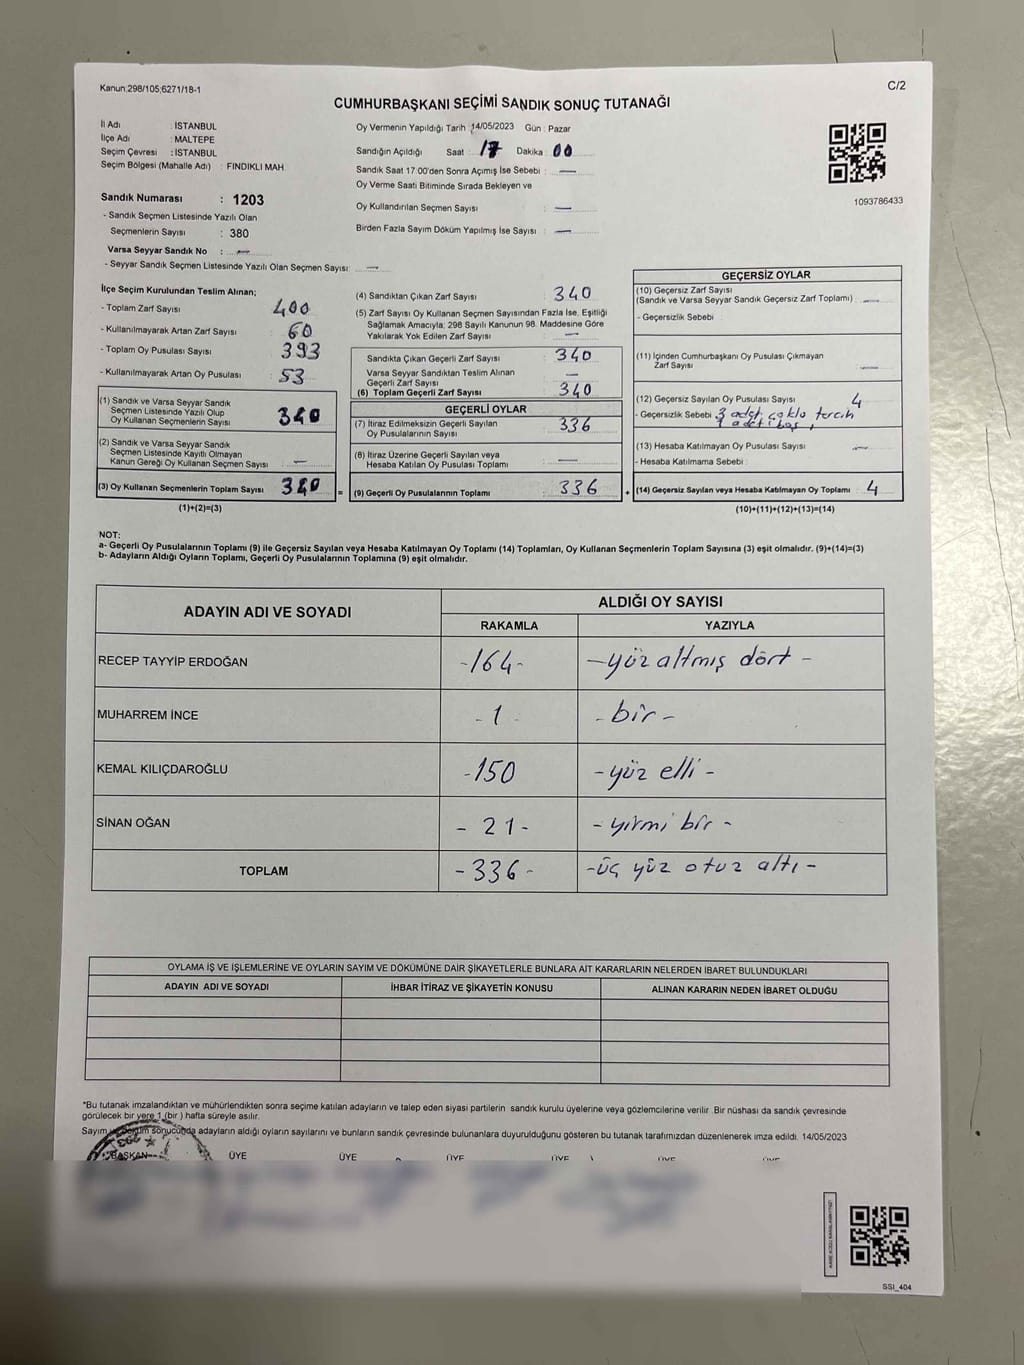 Kanun:298/105;6271/18-1
C/2
CUMHURBAŞKANI SEÇİMİ SANDIK SONUÇ TUTANAĞI
İl Adı : İSTANBUL
İlçe Adı : MALTEPE
Seçim Çevresi : İSTANBUL
Seçim Bölgesi (Mahalle Adı) : FINDIKLI MAH.
Oy Vermenin Yapıldığı Tarih : 14/05/2023 Gün : Pazar
Sandığın Açıldığı Saat : 17 Dakika : 00
Sandık Saat 17:00'den Sonra Açımış İse Sebebi : —
Oy Verme Saati Bitiminde Sırada Bekleyen ve
Oy Kullandırılan Seçmen Sayısı : —
Birden Fazla Sayım Döküm Yapılmış İse Sayısı : —
1093786433
Sandık Numarası : 1203
- Sandık Seçmen Listesinde Yazılı Olan
Seçmenlerin Sayısı : 380
Varsa Seyyar Sandık No : —
- Seyyar Sandık Seçmen Listesinde Yazılı Olan Seçmen Sayısı: —
İlçe Seçim Kurulundan Teslim Alınan;
- Toplam Zarf Sayısı : 400
- Kullanılmayarak Artan Zarf Sayısı : 60
- Toplam Oy Pusulası Sayısı : 393
- Kullanılmayarak Artan Oy Pusulası : 53
(1) Sandık ve Varsa Seyyar Sandık
Seçmen Listesinde Yazılı Olup
Oy Kullanan Seçmenlerin Sayısı : 340
(2) Sandık ve Varsa Seyyar Sandık
Seçmen Listesinde Kayıtlı Olmayan
Kanun Gereği Oy Kullanan Seçmen Sayısı : —
(3) Oy Kullanan Seçmenlerin Toplam Sayısı : 340
(1)+(2)=(3)
(4) Sandıktan Çıkan Zarf Sayısı : 340
(5) Zarf Sayısı Oy Kullanan Seçmen Sayısından Fazla İse, Eşitliği
Sağlamak Amacıyla; 298 Sayılı Kanunun 98. Maddesine Göre
Yakılarak Yok Edilen Zarf Sayısı : —
Sandıkta Çıkan Geçerli Zarf Sayısı : 340
Varsa Seyyar Sandıktan Teslim Alınan
Geçerli Zarf Sayısı : —
(6) Toplam Geçerli Zarf Sayısı : 340
GEÇERLİ OYLAR
(7) İtiraz Edilmeksizin Geçerli Sayılan
Oy Pusulalarının Sayısı : 336
(8) İtiraz Üzerine Geçerli Sayılan veya
Hesaba Katılan Oy Pusulası Toplamı : —
= (9) Geçerli Oy Pusulalarının Toplamı : 336 +
GEÇERSİZ OYLAR
(10) Geçersiz Zarf Sayısı
(Sandık ve Varsa Seyyar Sandık Geçersiz Zarf Toplamı) : —
- Geçersizlik Sebebi :
(11) İçinden Cumhurbaşkanı Oy Pusulası Çıkmayan
Zarf Sayısı : —
(12) Geçersiz Sayılan Oy Pusulası Sayısı : 4
- Geçersizlik Sebebi : 3 adet çoklu tercih
1 adet boş
(13) Hesaba Katılmayan Oy Pusulası Sayısı : —
- Hesaba Katılmama Sebebi :
(14) Geçersiz Sayılan veya Hesaba Katılmayan Oy Toplamı : 4
(10)+(11)+(12)+(13)=(14)
NOT:
a- Geçerli Oy Pusulalarının Toplamı (9) ile Geçersiz Sayılan veya Hesaba Katılmayan Oy Toplamı (14) Toplamları, Oy Kullanan Seçmenlerin Toplam Sayısına (3) eşit olmalıdır. (9)+(14)=(3)
b- Adayların Aldığı Oyların Toplamı, Geçerli Oy Pusulalarının Toplamına (9) eşit olmalıdır.
ADAYIN ADI VE SOYADI
ALDIĞI OY SAYISI
RAKAMLA YAZIYLA
RECEP TAYYİP ERDOĞAN -164- -yüz altmış dört-
MUHARREM İNCE -1 -bir-
KEMAL KILIÇDAROĞLU -150 -yüz elli-
SİNAN OĞAN -21- -yirmi bir-
TOPLAM -336- -üç yüz otuz altı-
OYLAMA İŞ VE İŞLEMLERİNE VE OYLARIN SAYIM VE DÖKÜMÜNE DAİR ŞİKAYETLERLE BUNLARA AİT KARARLARIN NELERDEN İBARET BULUNDUKLARI
ADAYIN ADI VE SOYADI İHBAR İTİRAZ VE ŞİKAYETİN KONUSU ALINAN KARARIN NEDEN İBARET OLDUĞU
*Bu tutanak imzalandıktan ve mühürlendikten sonra seçime katılan adayların ve talep eden siyasi partilerin sandık kurulu üyelerine veya gözlemcilerine verilir. Bir nüshası da sandık çevresinde
görülecek bir yere 1 (bir ) hafta süreyle asılır.
Sayım ve döküm sonucunda adayların aldığı oyların sayılarını ve bunların sandık çevresinde bulunanlara duyurulduğunu gösteren bu tutanak tarafımızdan düzenlenerek imza edildi. 14/05/2023
BAŞKAN ÜYE ÜYE ÜYE ÜYE ÜYE ÜYE
SSI_404